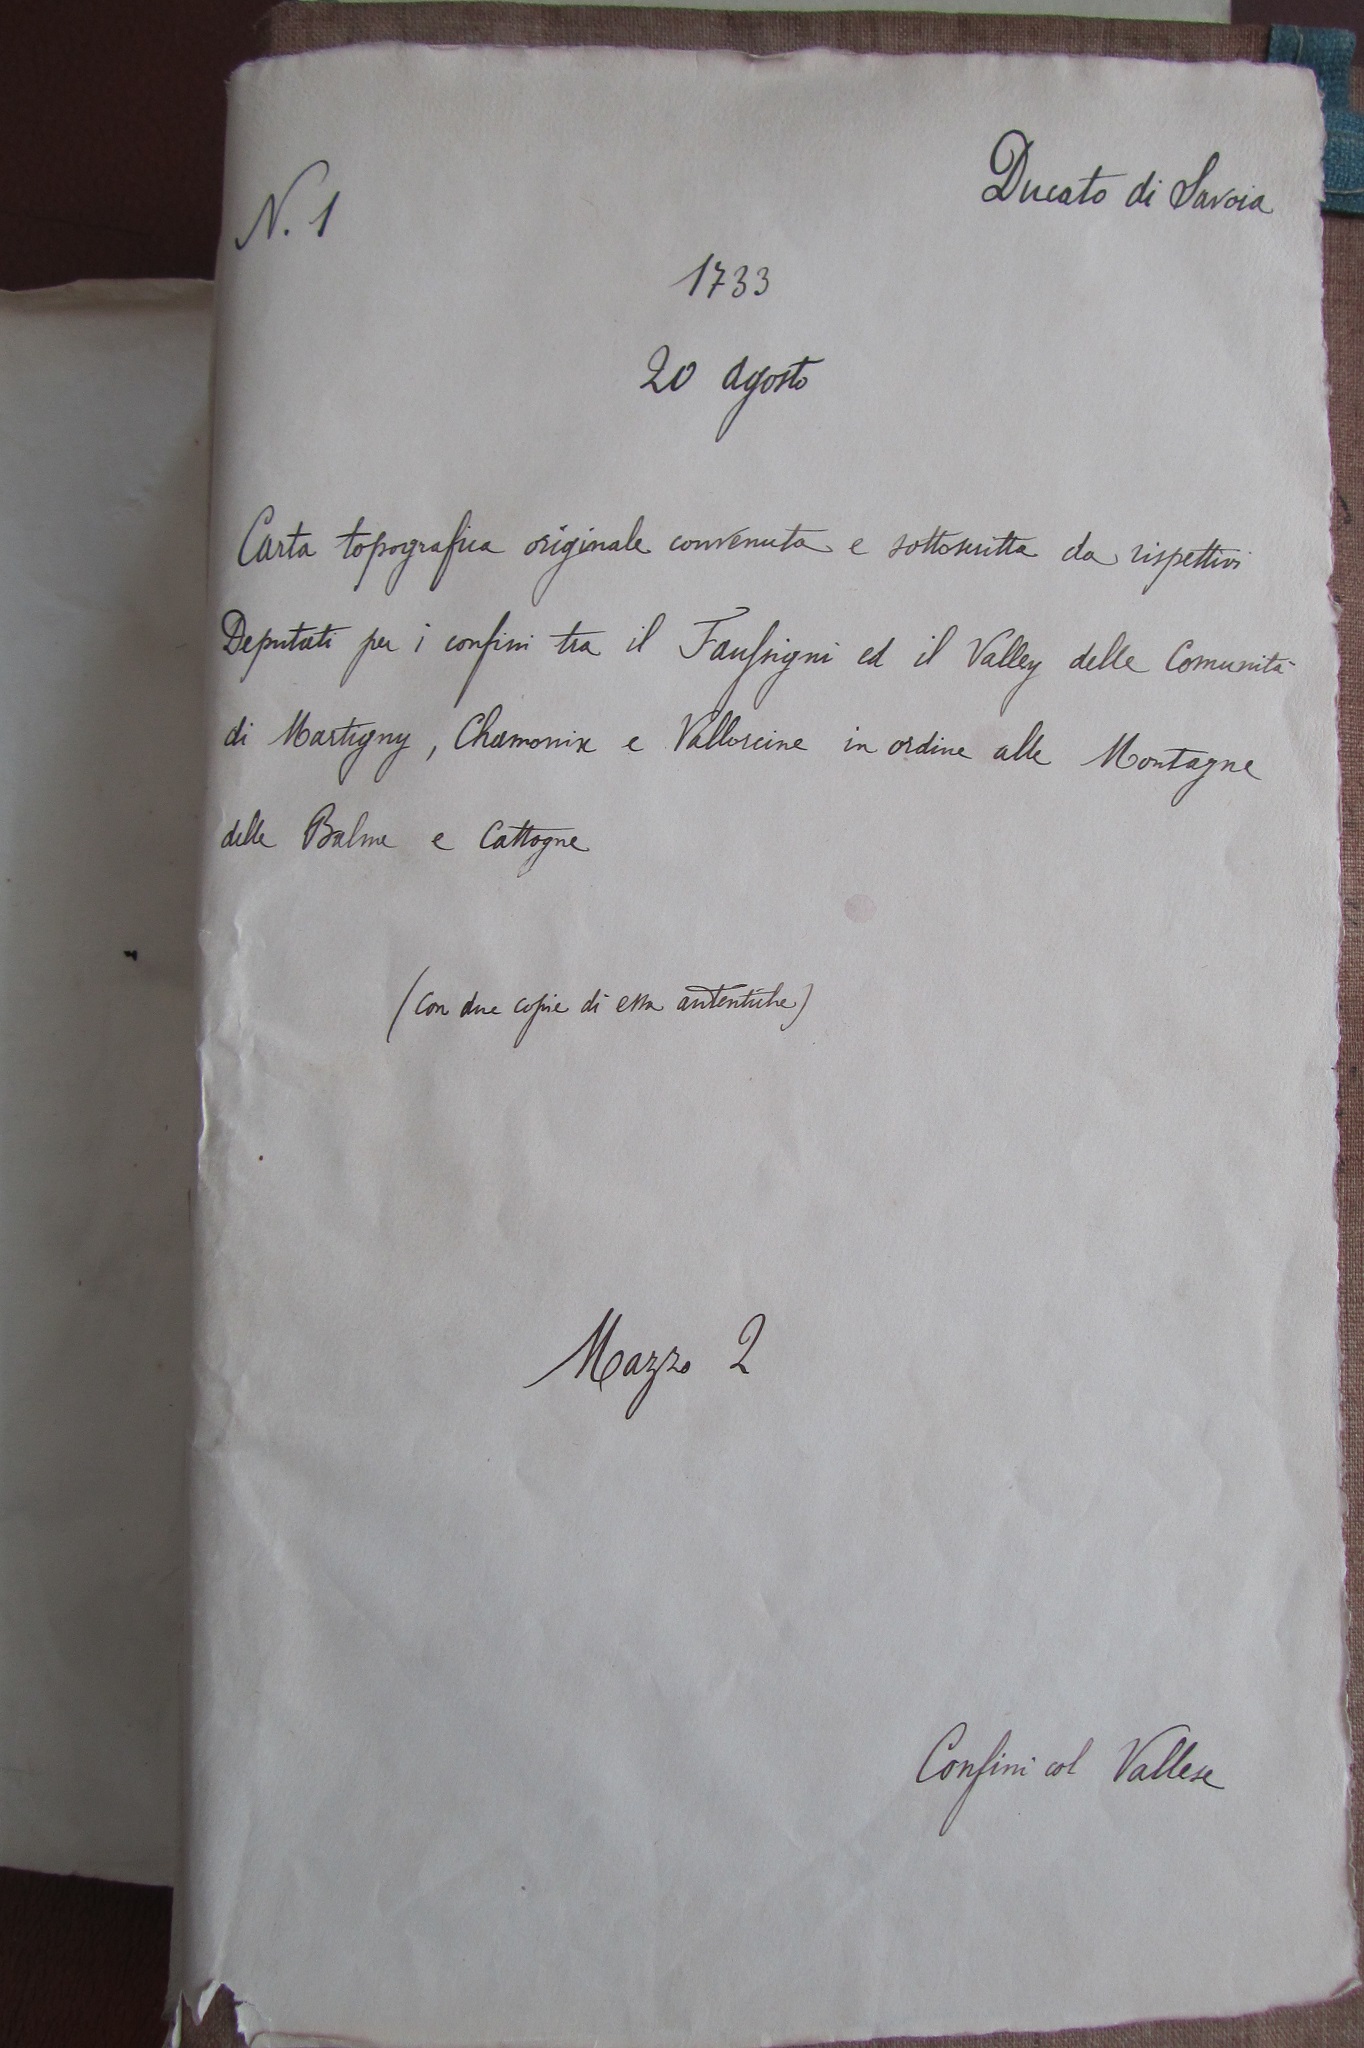 N. 1
Ducato di Savoia
1733
20 Agosto
Carta topografica originale convenuta e sottoscritta da rispettivi
Deputati per i confini tra il Faussigni ed il Valley delle Comunità
di Martigny, Chamonix e Vallorcine in ordine alle Montagne
delle Balme e Cattogne
(con due copie di essa autentiche)
Mazzo 2
Confini col Vallese